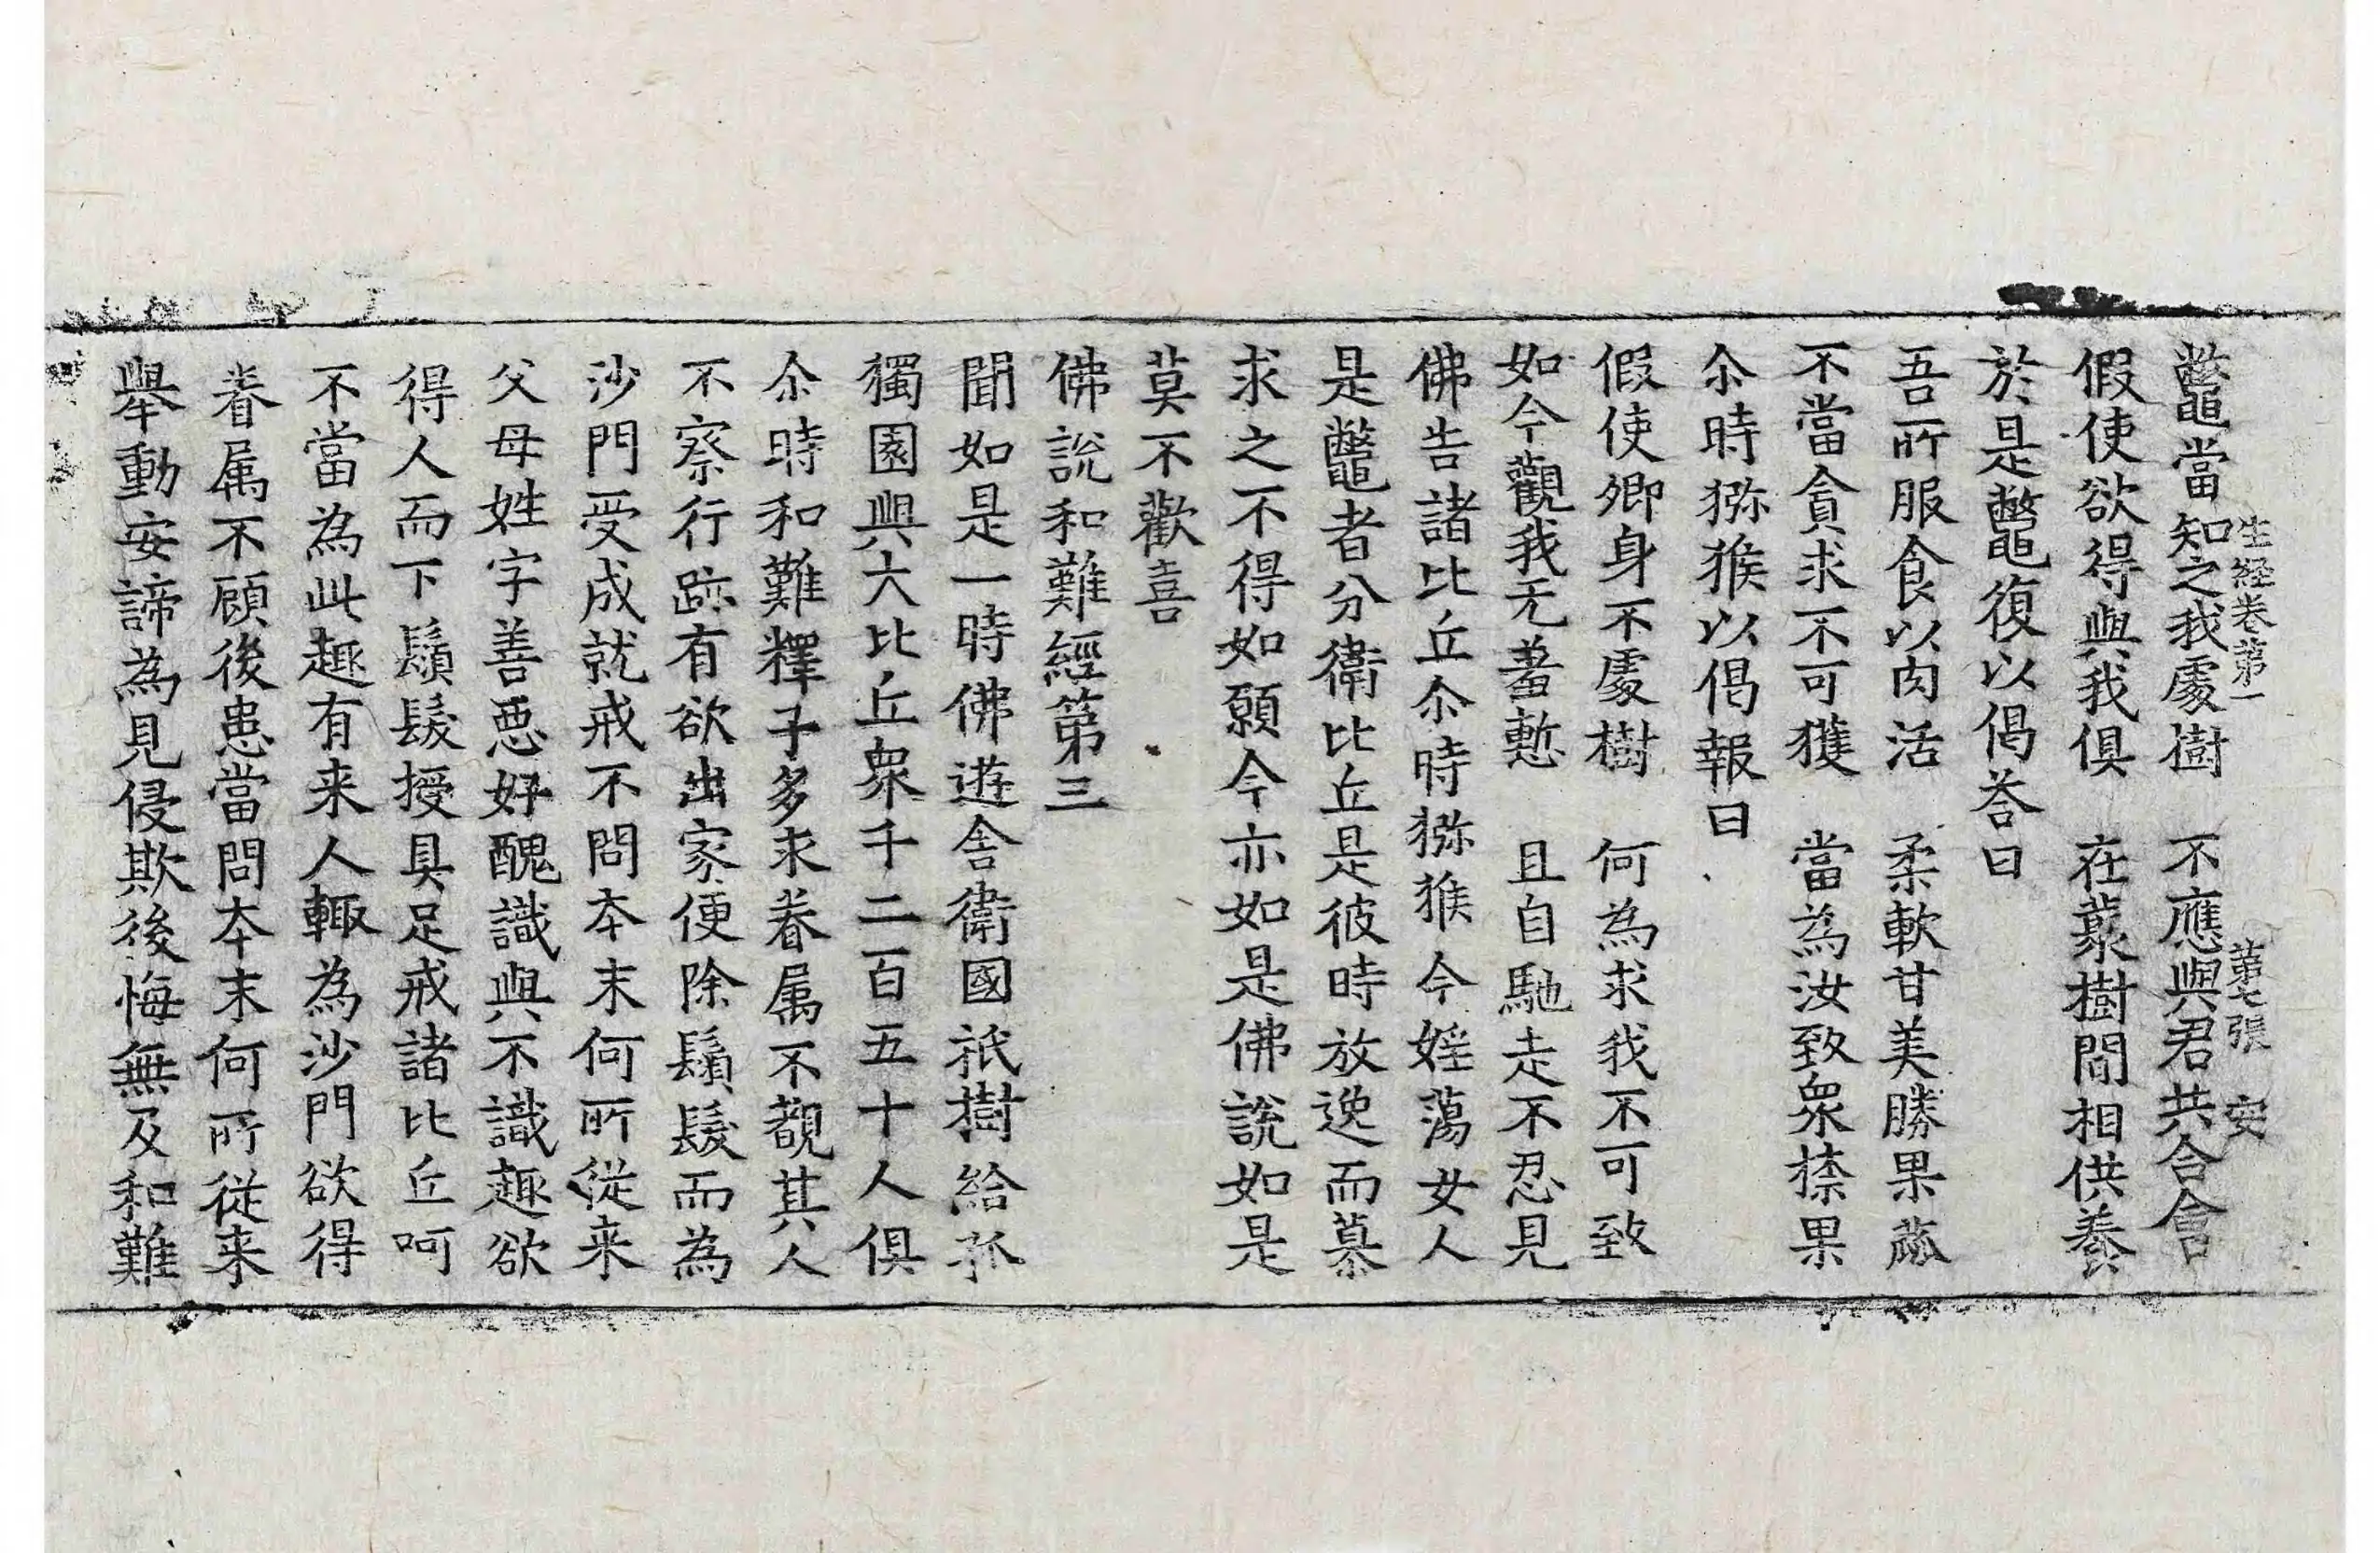 生経卷第一　第七張　安
鼈當知之我處樹　不應與君共合會
假使欲得與我俱　在藂樹間相供養
於是鼈復以偈荅曰
吾所服食以肉活　柔軟甘美勝果蓏
不當貪求不可獲　當為汝致衆㮈果
尒時猕猴以偈報曰
假使卿身不處樹　何為求我不可致
如今觀我无羞慙　且自馳走不忍見
佛告諸比丘尒時猕猴今婬蕩女人
是鼈者分衛比丘是彼時放逸而慕
求之不得如願今亦如是佛說如是
莫不歡喜
佛說和難經第三
聞如是一時佛遊舍衛國祇樹給孤
獨園與大比丘衆千二百五十人俱
尒時和難釋子多求眷属不觀其人
不察行跡有欲出家便除鬚髮而為
沙門受成就戒不問本末何所従来
父母姓字善惡好醜識與不識趣欲
得人而下鬚髮授具足戒諸比丘呵
不當為此趣有来人輙為沙門欲得
眷属不顧後患當問本末何所従来
舉動安諦為見侵欺後悔無及和難